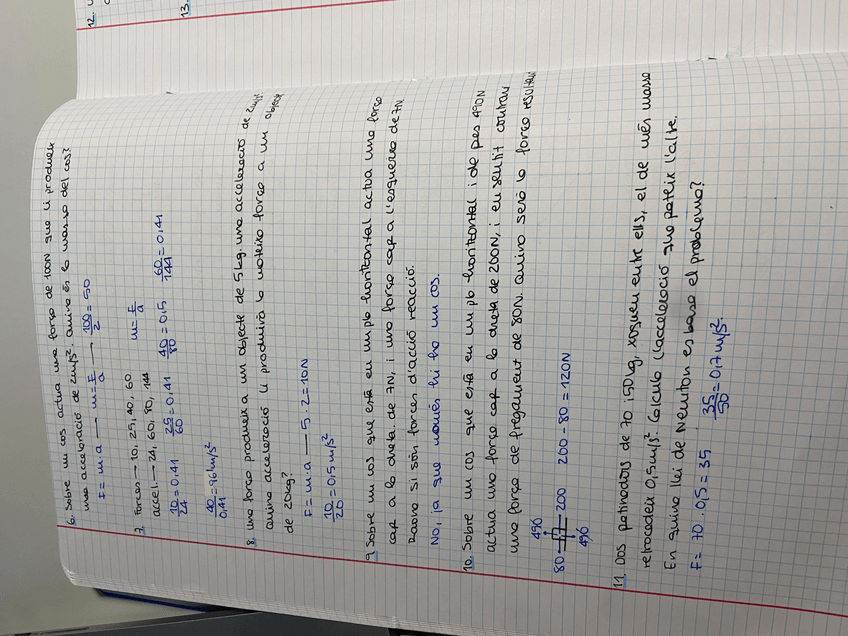 12.
13.
6. Sobre un cos actua una força de 100N que li produeix
una acceleració de 2m/s². Quina és la massa del cos?
F = m·a — m = F/a → 100/2 = 50
7. Forces → 10, 25, 40, 60 m = F/a
accel. → 24, 60, 80, 144
10/24 = 0,41 25/60 = 0,41 40/80 = 0,5 60/144 = 0,41
40/0,41 = 96 m/s²
8. Una força produeix a un objecte de 5kg. una acceleració de 2m/s².
Quina acceleració li produirà la mateixa força a un objecte
de 20kg?
F = m·a — 5·2 = 10N
10/20 = 0,5 m/s²
9. Sobre un cos que està en un pla horitzontal actua una força
cap a la dreta de 7N, i una força cap a l'esquerra de 7N.
Raona si són forces d'acció reacció.
No, ja que només hi ha un cos.
10. Sobre un cos que està en un pla horitzontal i de pes 490N
actua una força cap a la dreta de 200N, i en sentit contrari
una força de fregament de 80N. Quina serà la força resultant
490
80 200 200 - 80 = 120N
490
11. Dos patinadors de 70 i 50kg, xoquen entre ells, el de més massa
retrocedeix 0,5m/s². Calcula l'acceleració que pateix l'altre.
En quina llei de Newton es basa el problema?
F = 70·0,5 = 35 35/50 = 0,7 m/s².